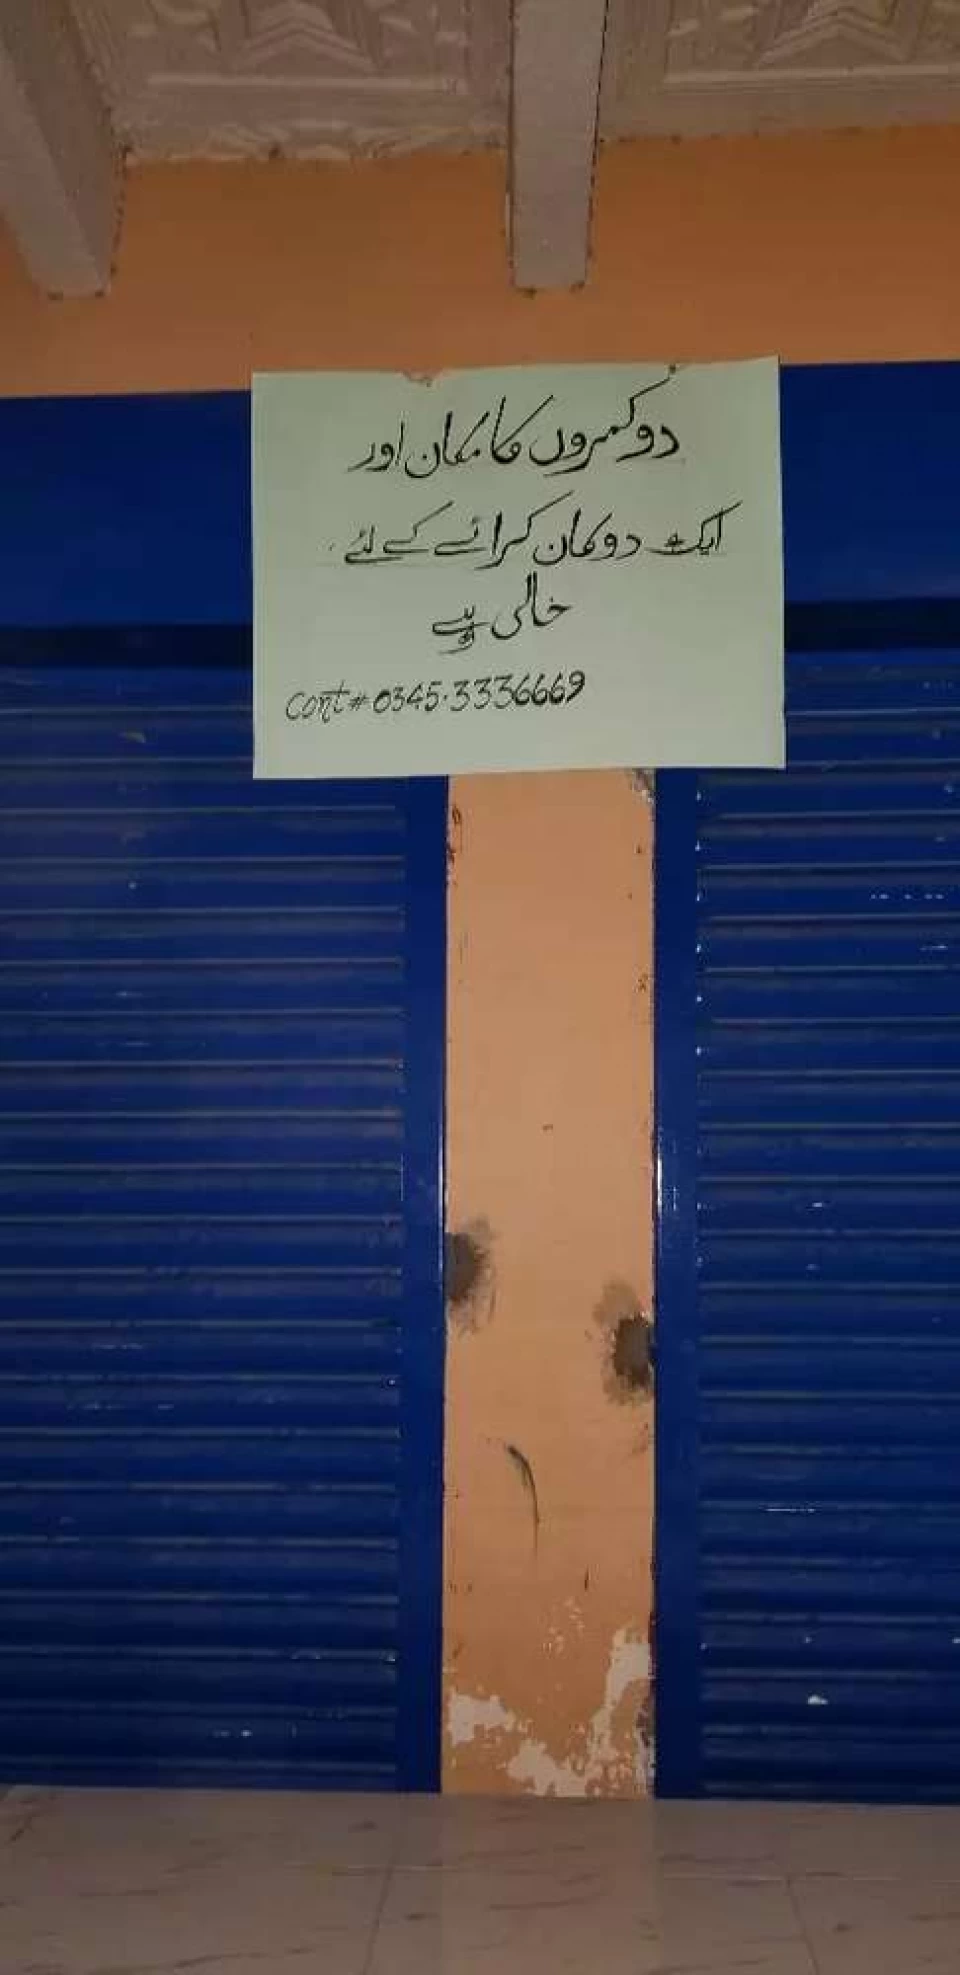 دو کمروں کا مکان اور
ایک دوکان کرائے کے لئے
خالی ہے
Cont # 0345.3336669